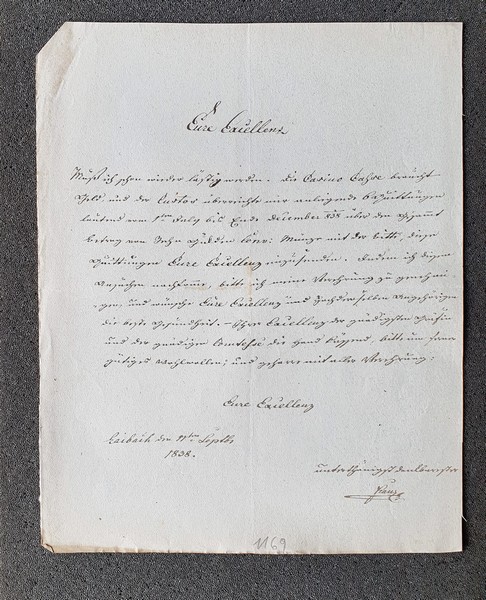 Eure Excellenz
Muß ich schon wieder lästig werden. Die Casino Cassa braucht
Geld und der Custos überreichte mir anliegende Quittungen
lautend vom 1ten July bis Ende December 838 über den Gesammt
betrag von Zehn Gulden Conv: Münze mit der bitte, diese
Quittungen Eure Excellenz einzusenden. Indem ich diesem
Ansuchen nachkomme, bitte ich meine Verehrung zu genehmi-
gen, und wünsche Eure Excellenz und Hochdenselben Angehörigen
die beste Gesundheit. Ihrer Excellenz der gnädigsten Gräfin
und der gnädigen Comtesse die Hand küssend, bitte um ferneres
gütiges Wohlwollen; und geharre mit aller Verehrung,
Eure Excellenz
Laibach den 11ten Septbr
1838.
unterthänigst dankbarster
1169